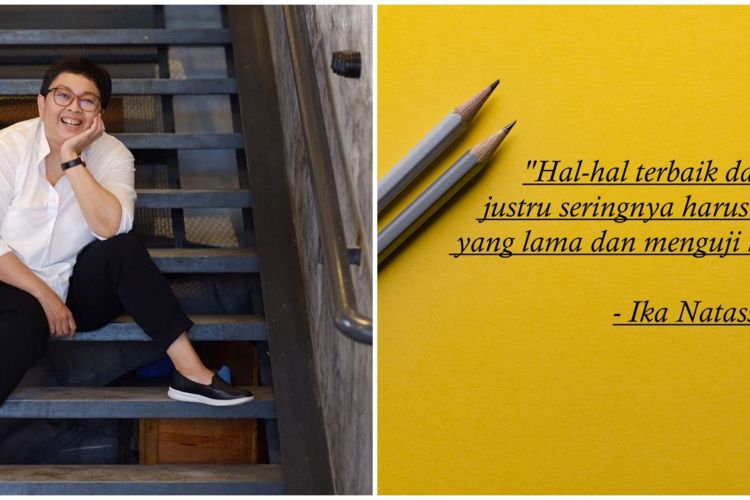 "Hal-hal terbaik da
justru seringnya harus
yang lama dan menguji
- Ika Natas